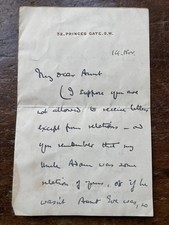 25, PRINCES GATE, S.W.
14. Nov.
My dear Aunt
(I suppose you are
not allowed to receive letters
except from relations – and
you remember that my
Uncle Adam was some
relation of yours, or if he
wasn't Aunt Eve was, so